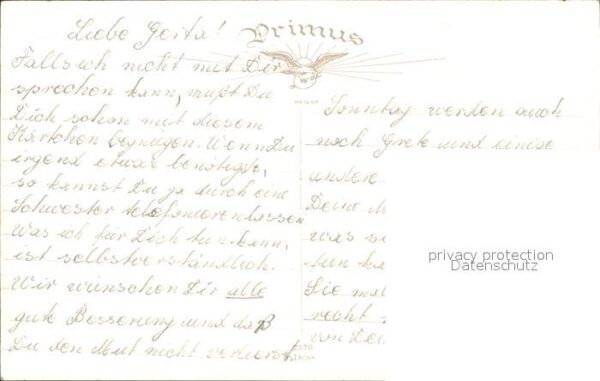 Liebe Gerta!
Primus
Falls ich nicht mit Dir
sprechen kann, mußt Du
Dich schon mit diesem
Kärtchen begnügen. Wenn Du
irgend etwas benötigst,
so kannst Du ja durch eine
Schwester telefonieren lassen
Was ich für Dich tun kann,
ist selbstverständlich.
Wir wünschen Dir alle
gute Besserung und daß
Du den Mut nicht verlierst.
Sonntag werden auch
noch Grete und einige
andere
Deine M
was s
tun ka
Sie ma
recht
von Dei
privacy protection
Datenschutz